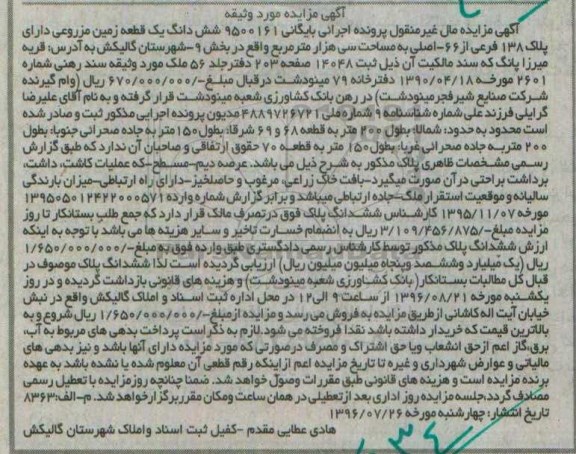 آگهی مزایده مورد وثیقه
آگهی مزایده مال غیرمنقول پرونده اجرائی بایگانی ۹۵۰۰۱۶۱ شش دانگ یک قطعه زمین مزروعی دارای
پلاک ۱۳۸ فرعی از۶۶-اصلی به مساحت سی هزار مترمربع واقع در بخش ۹-شهرستان گالیکش به آدرس: قریه
میرزا پانگ که سند مالکیت آن ذیل ثبت ۱۴۰۴۸ صفحه ۲۰۳ دفترجلد ۵۶ ملک مورد وثیقه سند رهنی شماره
۲۶۰۱ مورخه ۱۳۹۰/۰۴/۱۸ دفترخانه ۷۹ مینودشت درقبال مبلغ-/۶۷۰/۰۰۰/۰۰۰ ریال (وام گیرنده
شرکت صنایع شیرفجرمینودشت) در رهن بانک کشاورزی شعبه مینودشت قرار گرفته و به نام آقای علیرضا
گرایلی فرزند علی شماره شناسنامه ۹ شماره ملی ۴۸۸۹۷۲۶۷۲۱ مدیون پرونده اجرایی مذکور ثبت و صادر شده
است محدود به حدود: شمالا: بطول ۲۰۰ متر به قطعه ۶۸ و ۶۹ شرقا: بطول۱۵۰متر به جاده صحرائی جنوبا: بطول
۲۰۰ متربه جاده صحرائی غربا: بطول۱۵۰ متر به قطعه ۷۰ حقوق ارتفاقی و صاحبان آن ندارد که طبق گزارش
رسمی مشخصات ظاهری پلاک مذکور به شرح ذیل می باشد. عرصه دیم-مسطح-که عملیات کاشت، داشت،
برداشت براحتی درآن صورت میگیرد-بافت خاک زراعی، مرغوب و حاصلخیز-دارای راه ارتباطی-میزان بارندگی
سالیانه و موقعیت استقرار ملک-جاده ارتباطی میباشد و برابر گزارش شماره وارده ۱۳۹۵۰۵۰۱۲۴۲۲۰۰۰۵۷۱
مورخه ۱۳۹۵/۱۱/۰۷ کارشناس ششدانگ پلاک فوق درتصرف مالک قرار دارد که جمع طلب بستانکار تا روز
مزایده مبلغ-/۳/۱۰۹/۴۵۶/۸۷۵ ریال به انضمام خسارت تاخیر و سایر هزینه ها می باشد با توجه به اینکه
ارزش ششدانگ پلاک مذکور توسط کارشناس رسمی دادگستری طبق وارده فوق به مبلغ-/۱/۶۵۰/۰۰۰/۰۰۰
ریال (یک میلیارد وششصد وپنجاه میلیون میلیون ریال) ارزیابی گردیده است لذا ششدانگ پلاک موصوف در
قبال کل مطالبات بستانکار( بانک کشاورزی شعبه مینودشت) و هزینه های قانونی بازداشت گردیده و در روز
یکشنبه مورخه ۱۳۹۶/۰۸/۲۱ از ساعت ۹ الی۱۲ در محل اداره ثبت اسناد و املاک گالیکش واقع در نبش
خیابان آیت اله کاشانی ازطریق مزایده به فروش می رسد و مزایده ازمبلغ-/۱/۶۵۰/۰۰۰/۰۰۰ ریال شروع و به
بالاترین قیمت که خریدار داشته باشد نقدا فروخته می شود.لازم به ذکر است پرداخت بدهی های مربوط به آب،
برق،گاز اعم ازحق انشعاب ویا حق اشتراک و مصرف درصورتی که مورد مزایده دارای آنها باشد و نیز بدهی های
مالیاتی و عوارض شهرداری و غیره تا تاریخ مزایده اعم ازاینکه رقم قطعی آن معلوم شده یا نشده باشد به عهده
برنده مزایده است و هزینه های قانونی طبق مقررات وصول خواهد شد. ضمنا چنانچه روزمزایده با تعطیل رسمی
مصادف گردد،جلسه مزایده روز اداری بعد ازتعطیلی در همان ساعت ومکان مقرربرگزارخواهد شد. م-الف:۸۳۶۳
تاریخ انتشار: چهارشنبه مورخه ۱۳۹۶/۰۷/۲۶
هادی عطایی مقدم -کفیل ثبت اسناد واملاک شهرستان گالیکش